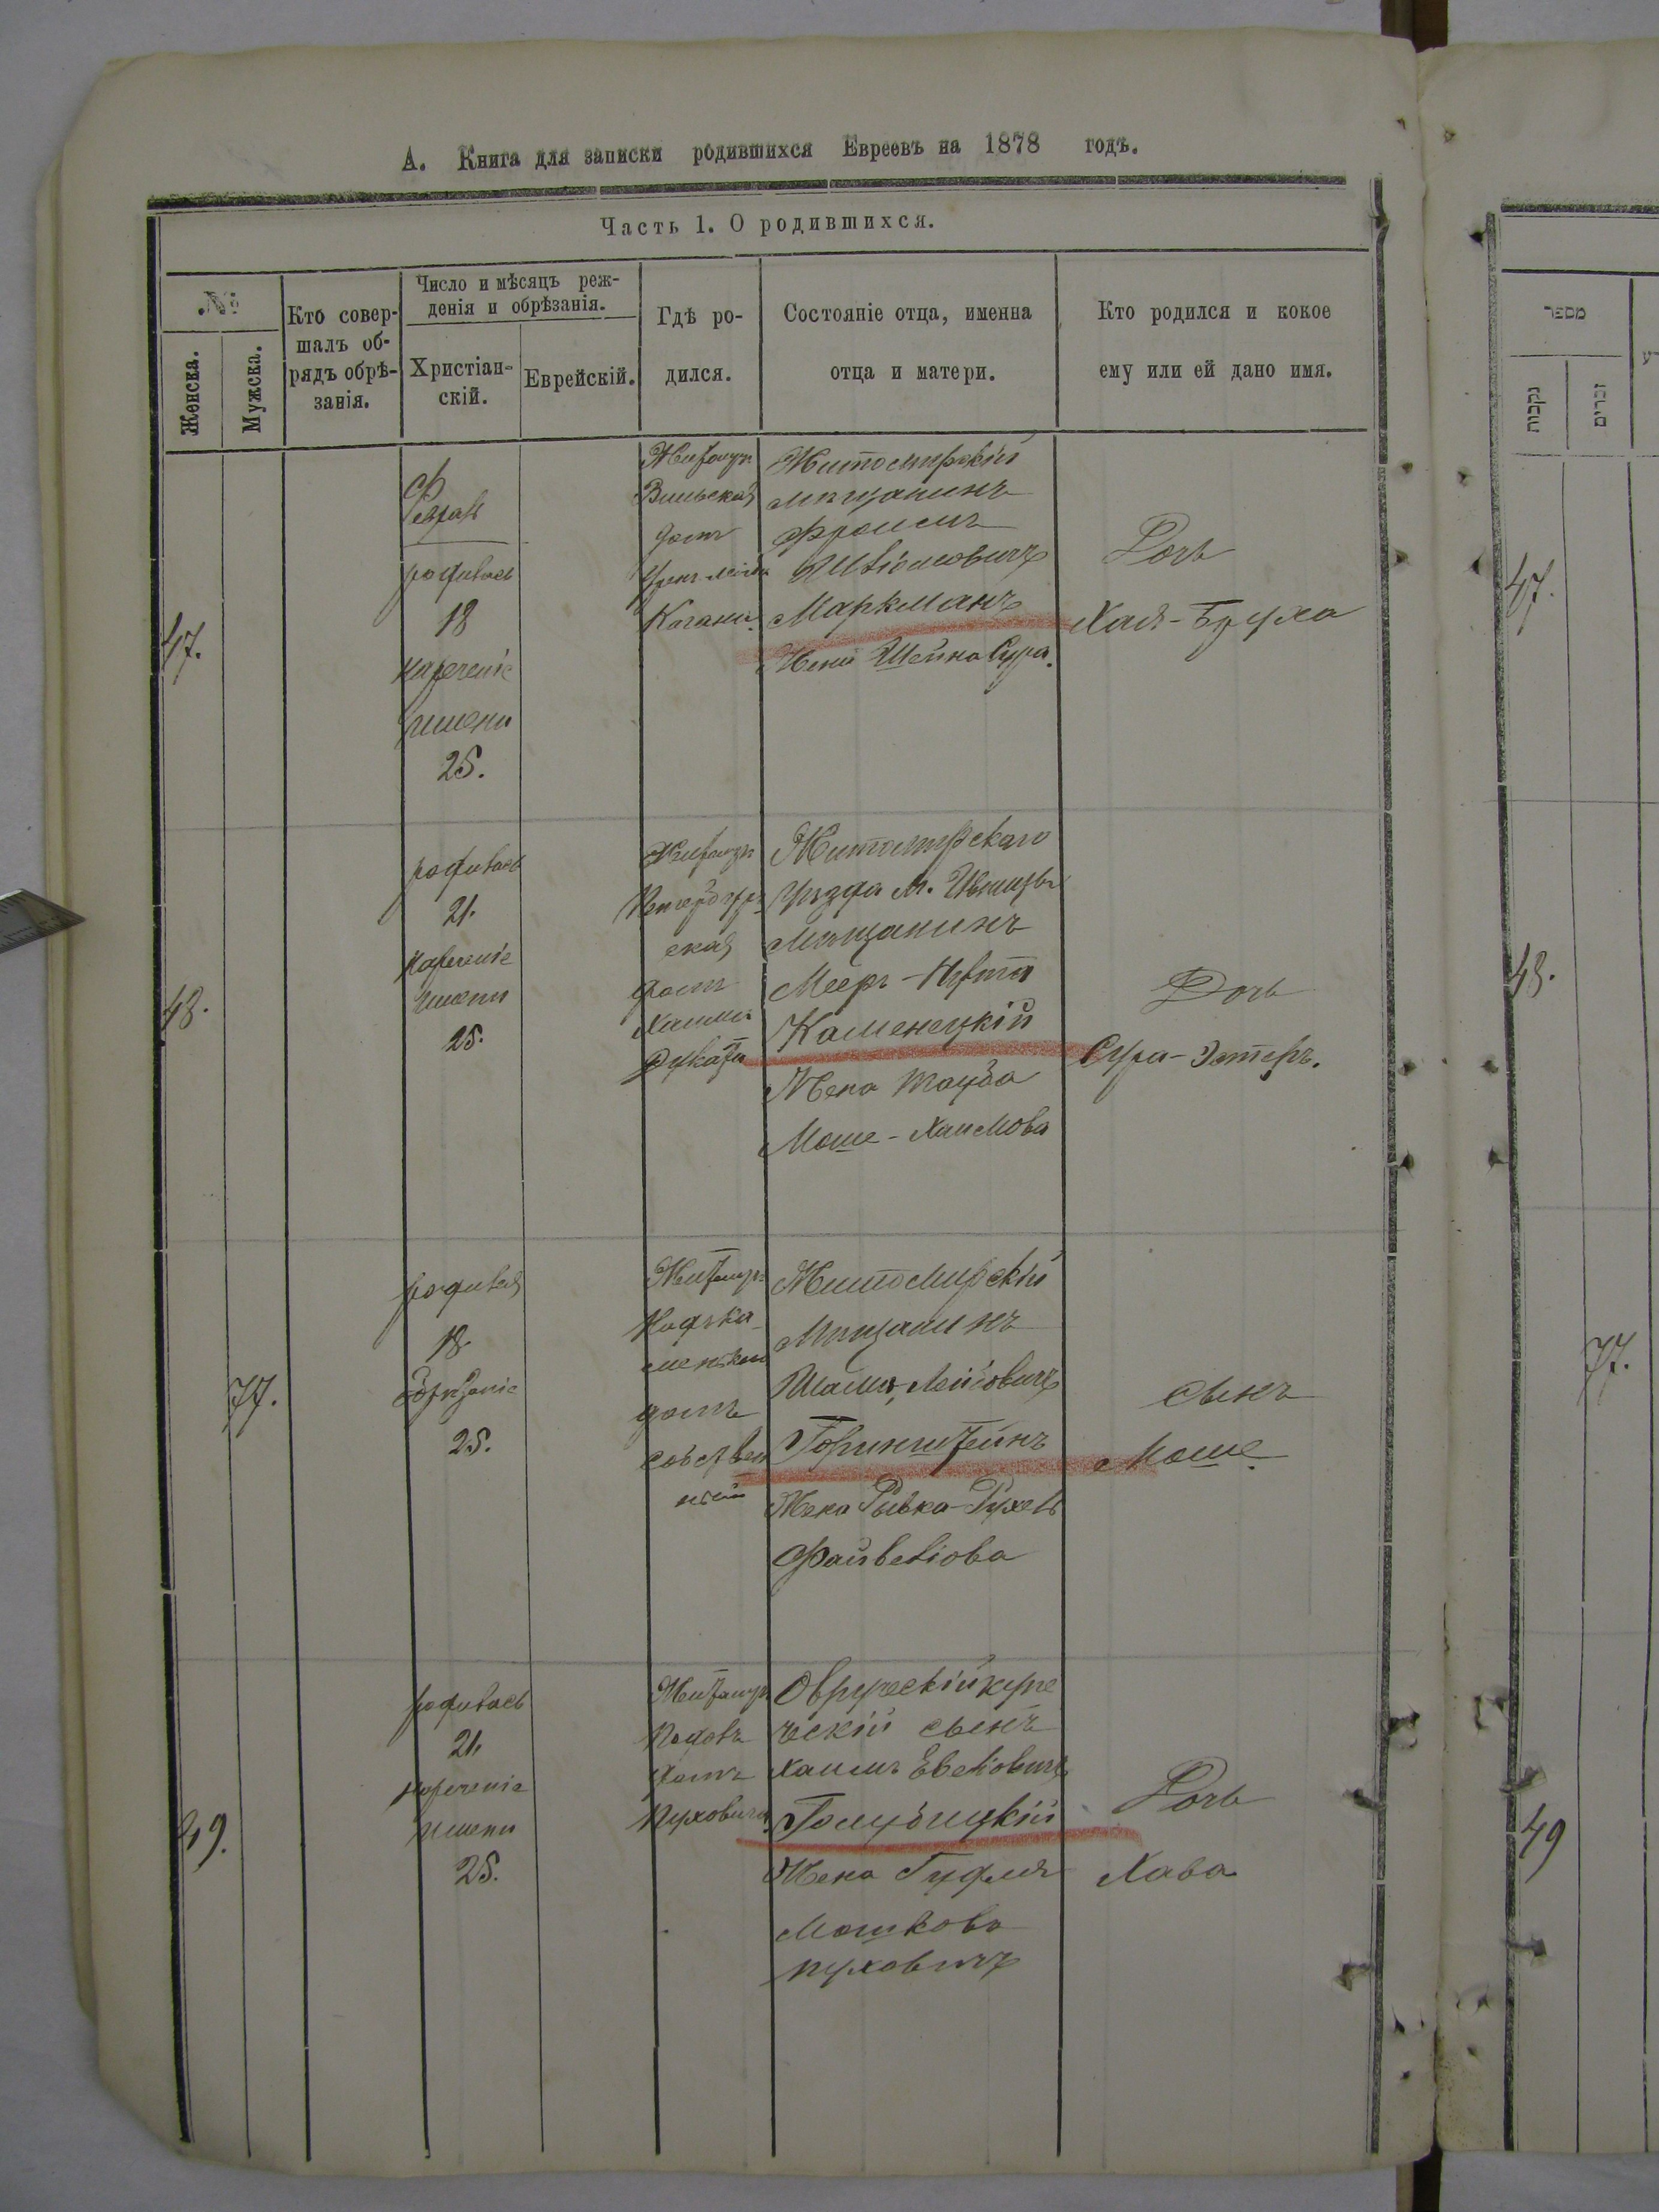 А. Книга для записки родившихся Евреевъ на 1878 годъ.
Часть 1. О родившихся.
№
Женска.
Мужска.
Кто совер-
шалъ об-
рядъ обрѣ-
занія.
Число и мѣсяцъ реж-
денія и обрѣзанія.
Христіан-
скій.
Еврейскій.
Гдѣ ро-
дился.
Состояніе отца, именна
отца и матери.
Кто родился и кокое
ему или ей дано имя.
47.
Феврал
родилась
18
нареченіе
имени
25.
Житомир
Вильская
домъ
Когана.
Житомирскій
мѣщанинъ
Фроимъ
Маркманъ
Жена Шейна Сура.
Дочь
Хая-Бруха
48.
родилась
21.
нареченіе
имени
25.
Житомир
Петербург
ская
домъ
Хаима
Дуката
Житомирскаго
Уѣзда м.
Мѣщанинъ
Мееръ-Нута
Каменецкій
Жена Тауба
Моше-Хаимова
Дочь
Сура-Эстеръ.
77.
родился
18.
обрѣзаніе
25.
Житомир
Подъка-
менькою
домъ
собствен
ный
Житомирскій
Мѣщанинъ
Лейбовичъ
Горинштейнъ
Жена Рывка-Рухель
Файвеліова
сынъ
Моше.
49.
родилась
21.
нареченіе
имени
25.
Житомир
домъ
Пуховича
Овручскій купе
ческій сынъ
Хаимъ Евеліовичъ
Голубицкій
Жена Гудля
Мошкова
пуховичъ
Дочь
Хава
מספר
נקבות
זכרים
47.
48.
77.
49